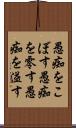 愚痴をこ
ぼす愚痴
を零す愚
痴を溢す